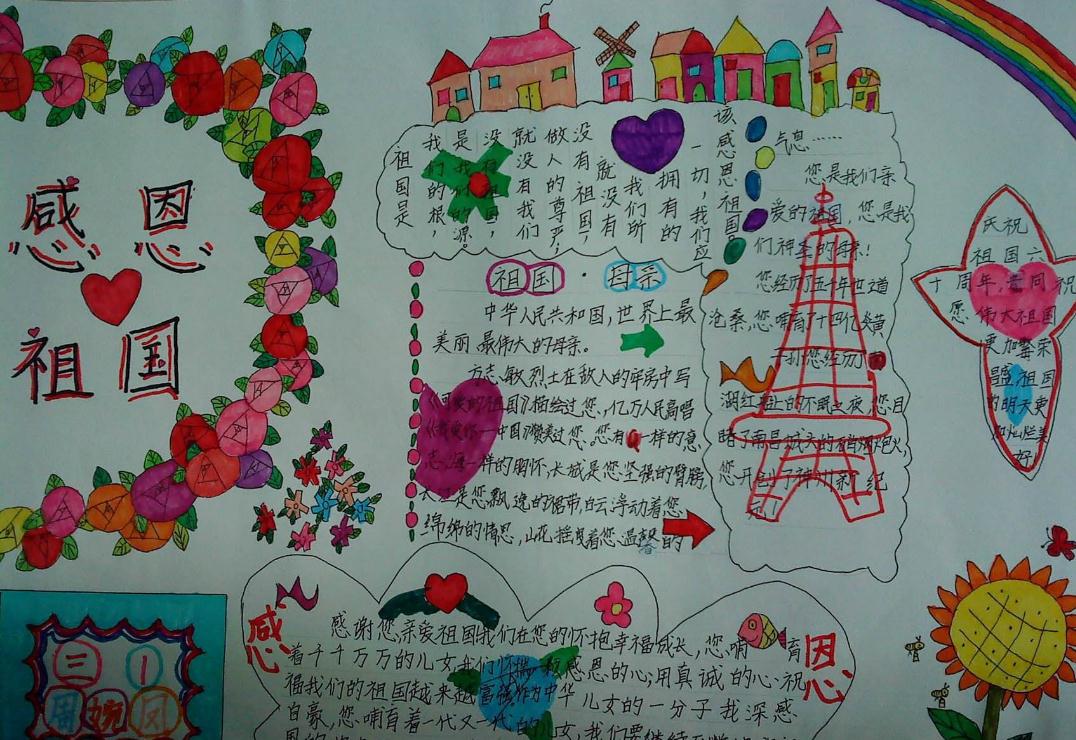 感恩
祖国
祖国是
我们的根，
是我的源。
没有祖国，
就没有我们
做人的尊严；
没有祖国，
就没有
我们所
拥有的
一切，我们应
该感恩祖国
祖国·母亲
中华人民共和国，世界上最
美丽最伟大的母亲。
方志敏烈士在敌人的牢房中写
《可爱的祖国》描绘过您，亿万人民高唱
一中国》赞美过您。您有一样的意
志，海一样的胸怀，长城是您坚强的臂膀，
是您飘逸的
浮动着您
绵绵的情思，山花摇曳着您温馨的
气息……
您是我们亲
爱的祖国，您是我
们神圣的母亲！
您经历了五千年世道
沧桑，您哺育了十四亿炎黄
子孙您经历
湖红船上的不眠之夜，您目
睹了南昌城头的炮火，
您开创了神州新纪
元
庆祝
祖国六
十周年，共同祝
愿，伟大祖国
更加繁荣
昌盛，祖国
的明天更
加灿烂美
好
感恩
感谢您，亲爱祖国我们在您的怀抱幸福成长，您哺育
着千千万万的儿女，我们怀揣一颗感恩的心，用真诚的心祝
福我们的祖国越来越富强作为中华儿女的一分子我深感
自豪，您哺育着一代又一代的儿女，我们要继续
三1
周婉凤